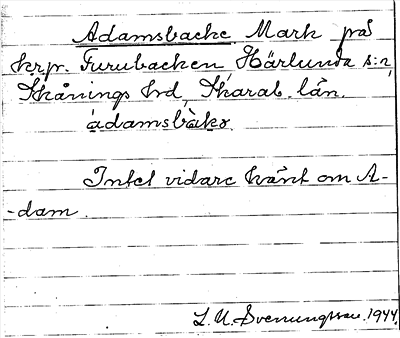 Adamsbacke Mark på
krp. Furubacken Härlunda s:n,
Skånings hd, Skarab. län.
ádamsbàkə.
Intet vidare känt om A-
-dam.
L. U. Svenungsson. 1944.